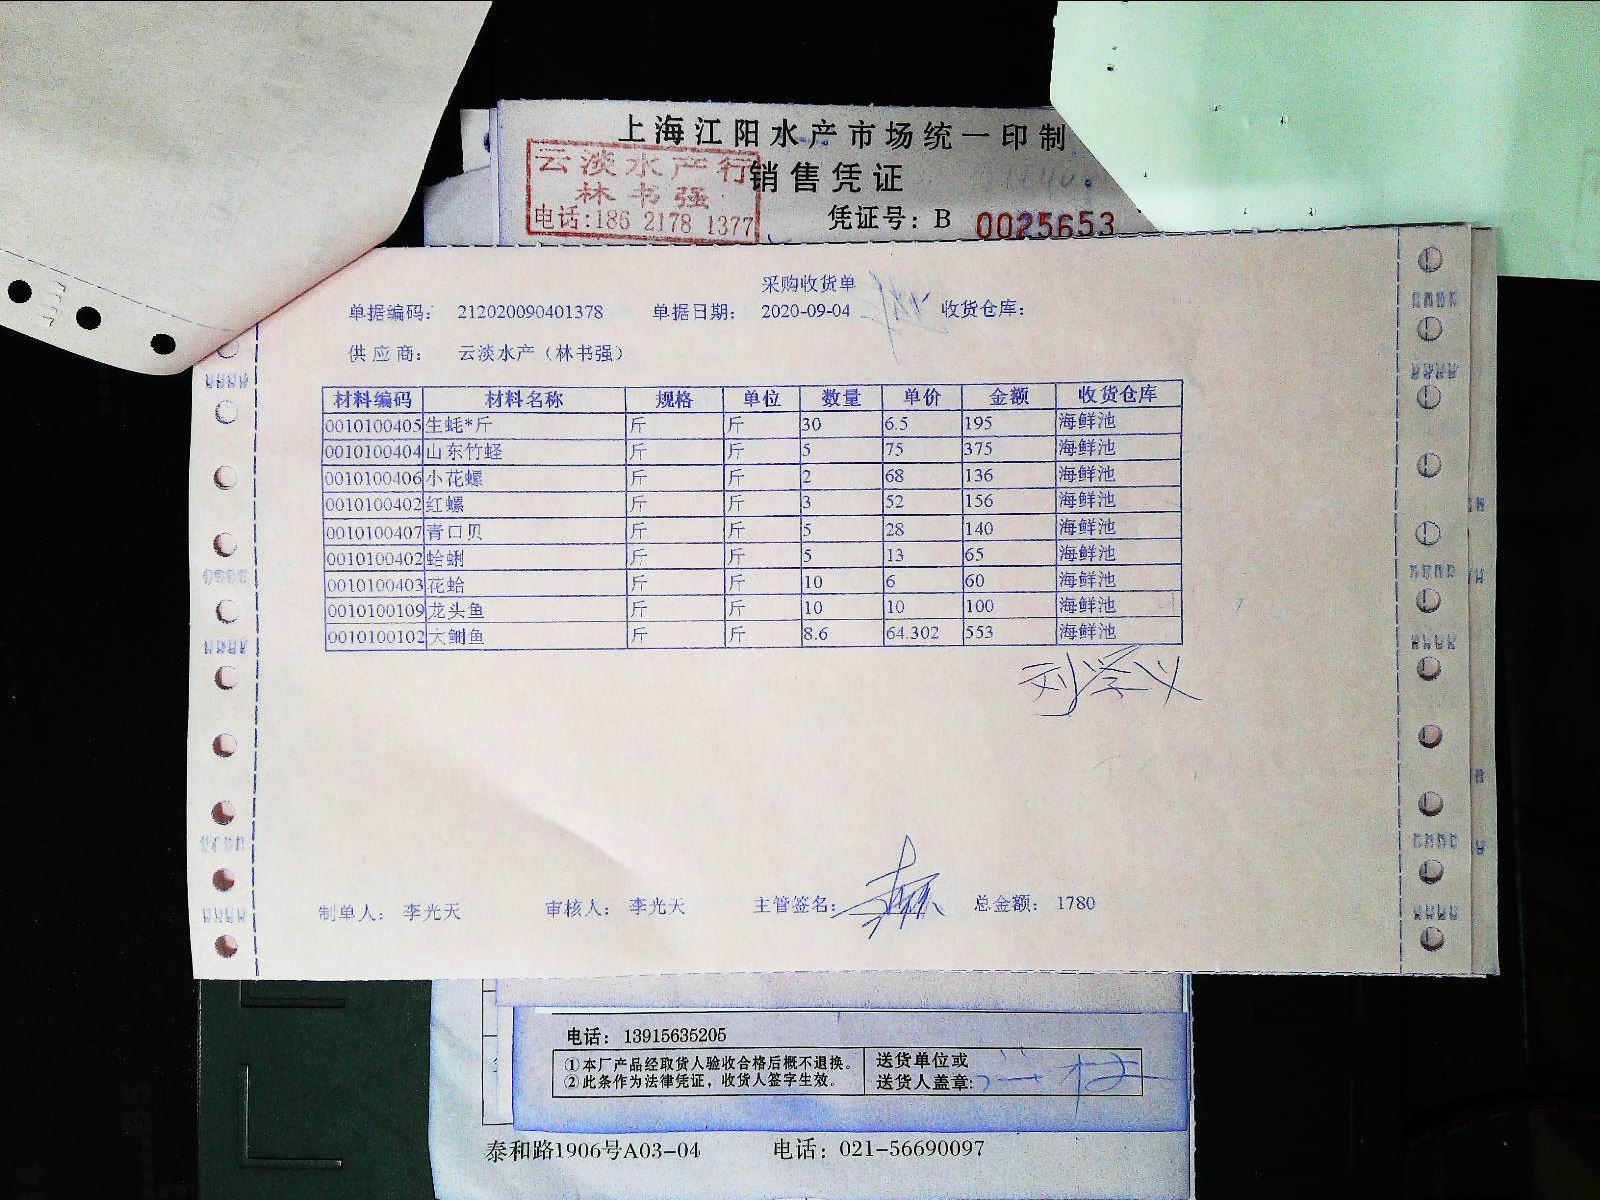 上海江阳水产市场统一印制
云淡水产行
林书强
电话:186 2178 1377
销售凭证
凭证号：B 0025653
采购收货单
单据编码： 212020090401378 单据日期： 2020-09-04 收货仓库：
供应商： 云淡水产（林书强）
材料编码 材料名称 规格 单位 数量 单价 金额 收货仓库
0010100405 生蚝*斤 斤 斤 30 6.5 195 海鲜池
0010100404 山东竹蛏 斤 斤 5 75 375 海鲜池
0010100406 小花螺 斤 斤 2 68 136 海鲜池
0010100402 红螺 斤 斤 3 52 156 海鲜池
0010100407 青口贝 斤 斤 5 28 140 海鲜池
0010100402 蛤蜊 斤 斤 5 13 65 海鲜池
0010100403 花蛤 斤 斤 10 6 60 海鲜池
0010100109 龙头鱼 斤 斤 10 10 100 海鲜池
0010100102 大鲍鱼 斤 斤 8.6 64.302 553 海鲜池
刘学义
制单人： 李光天 审核人： 李光天 主管签名： 总金额： 1780
电话： 13915635205
①本厂产品经取货人验收合格后概不退换。
②此条作为法律凭证，收货人签字生效。
送货单位或
送货人盖章:
泰和路1906号A03-04 电话：021-56690097